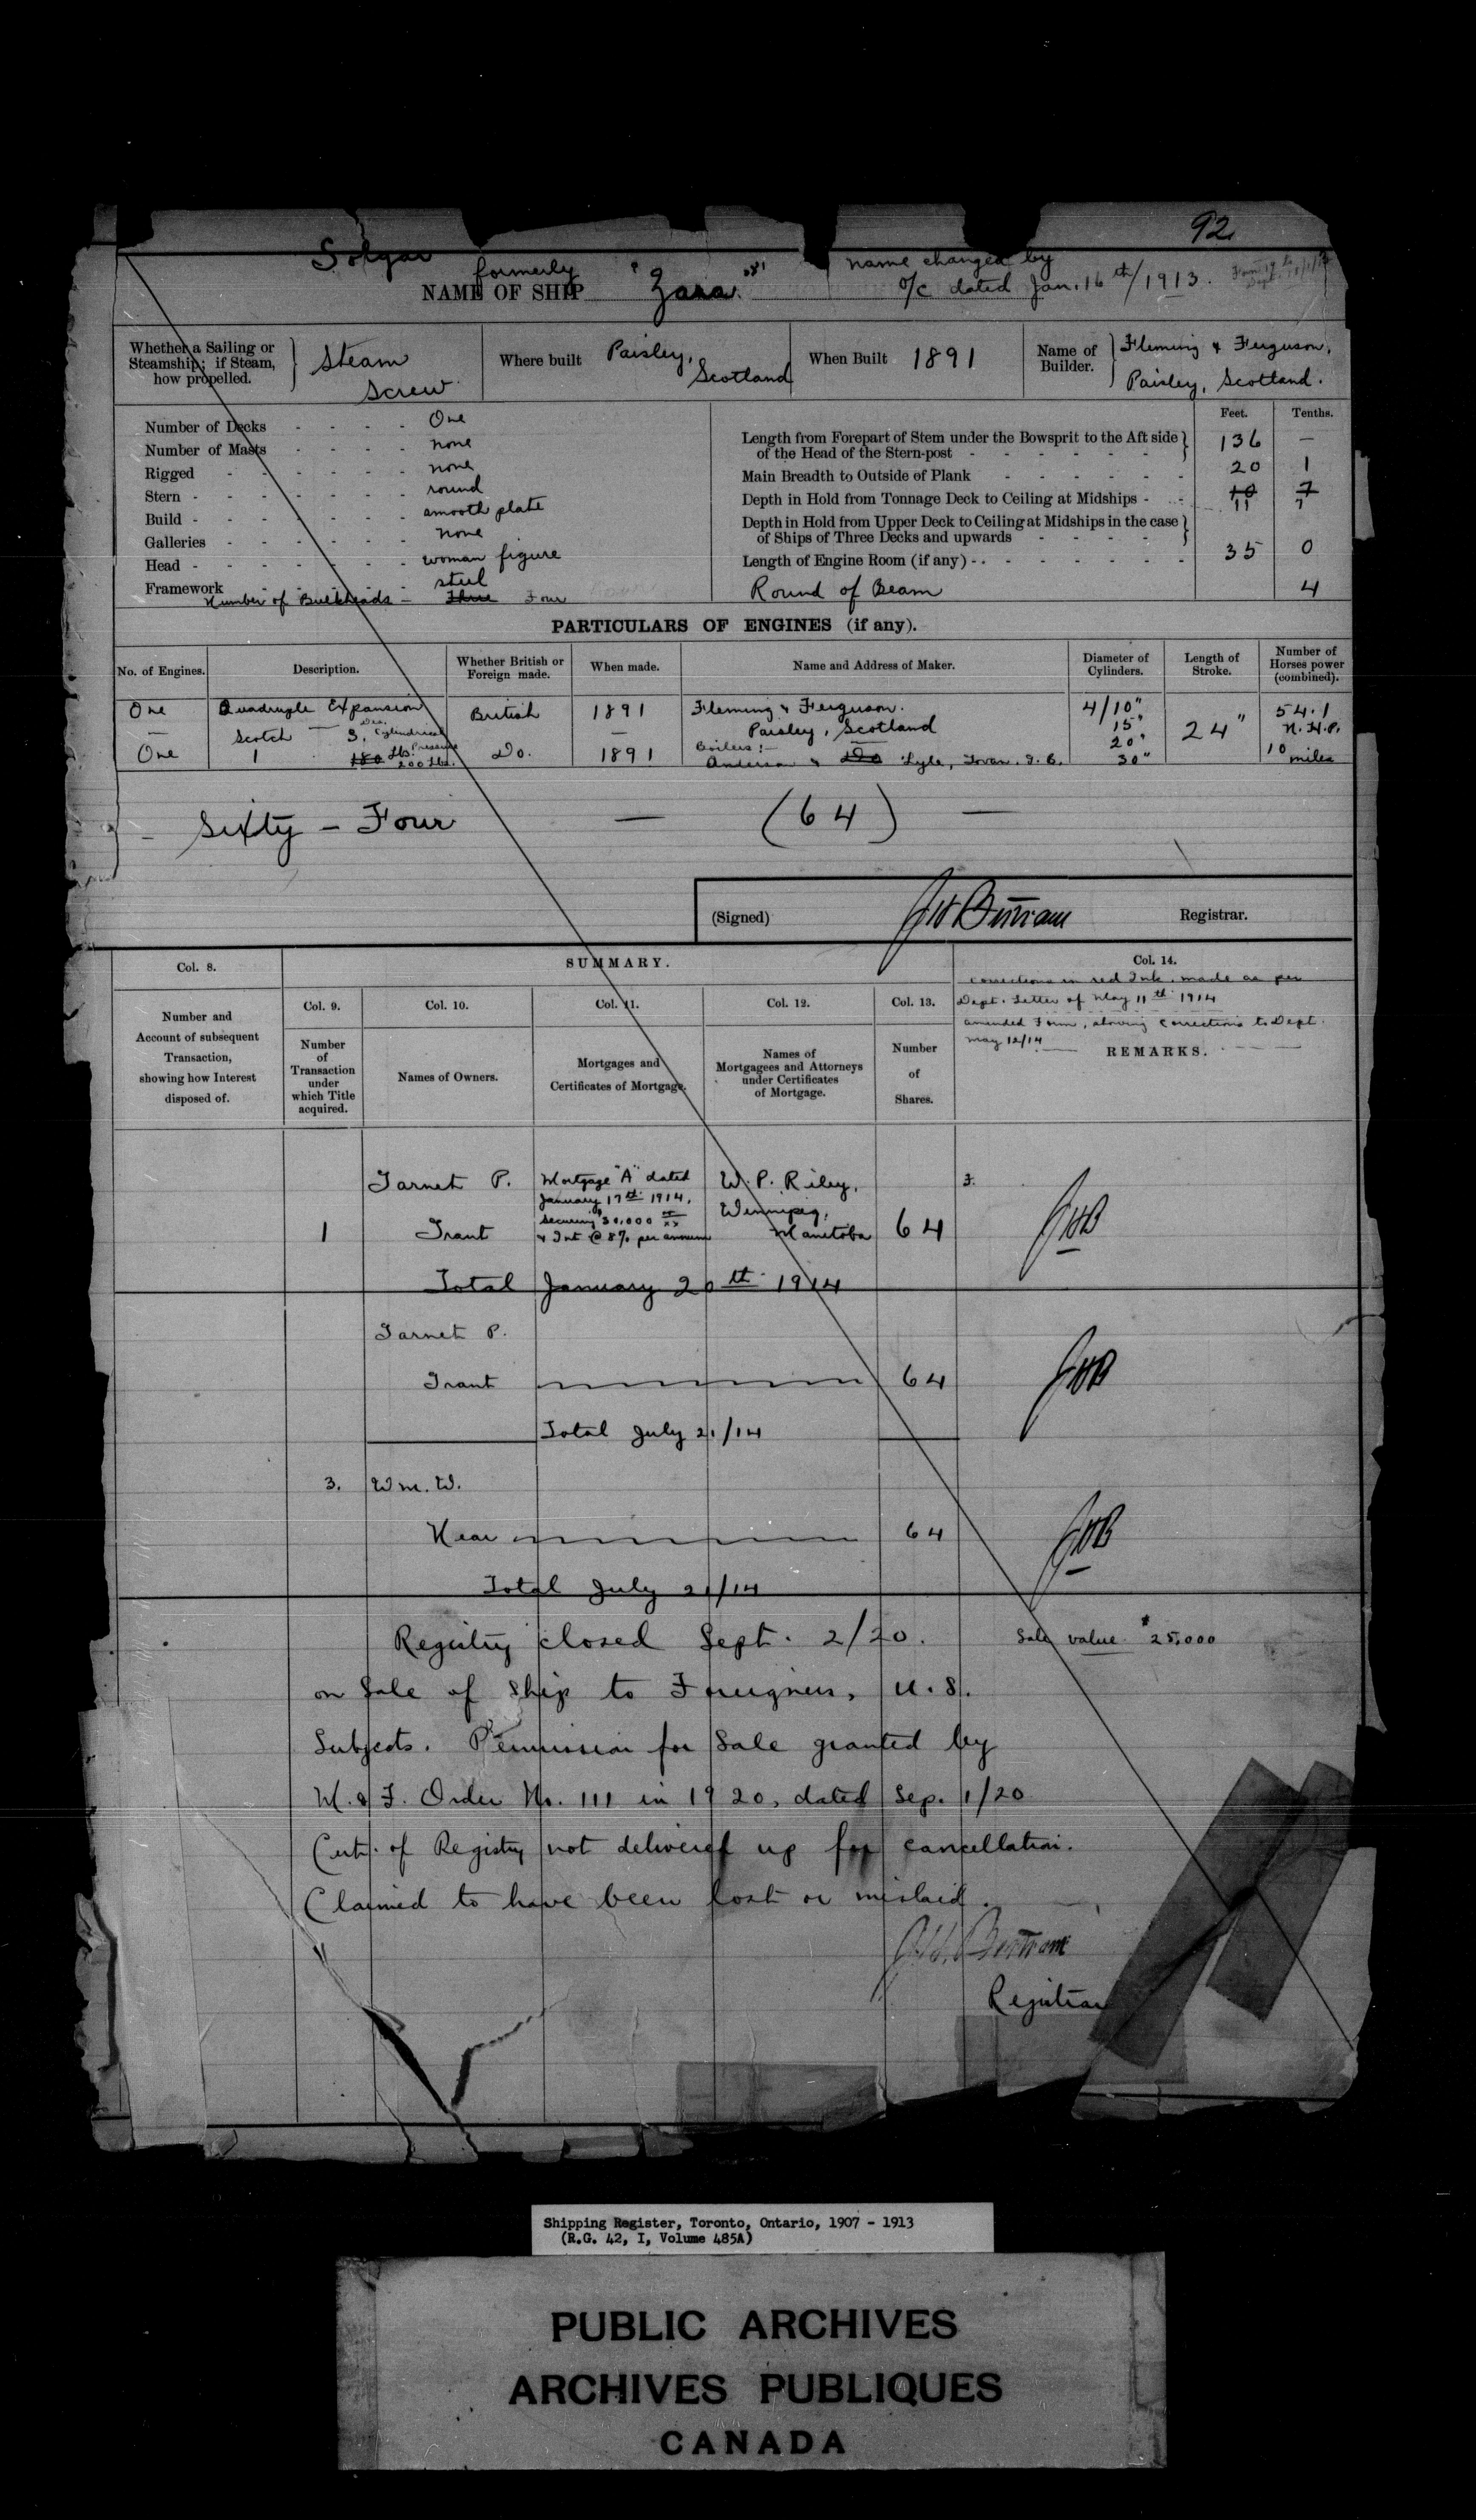 92
Solgar name changed by
formerly "Zara" o/c dated Jan. 16th/1913.
NAME OF SHIP
Whether a Sailing or Steamship; if Steam, how propelled. Steam Screw
Where built Paisley, Scotland
When Built 1891
Name of Builder. Fleming & Ferguson, Paisley, Scotland.
Feet. Tenths.
Number of Decks - - - - One
Number of Masts - - - - none
Rigged - - - - - - none
Stern - - - - - - round
Build - - - - - - smooth plate
Galleries - - - - - - none
Head - - - - - - woman figure
Framework - - - - - steel
Number of Bulkheads - Three Four
Length from Forepart of Stem under the Bowsprit to the Aft side of the Head of the Stern-post - - - - - - 136 —
Main Breadth to Outside of Plank - - - - - - 20 1
Depth in Hold from Tonnage Deck to Ceiling at Midships - - 10 7
11 7
Depth in Hold from Upper Deck to Ceiling at Midships in the case of Ships of Three Decks and upwards - - - - -
Length of Engine Room (if any) - - - - - - - - 35 0
Round of Beam 4
PARTICULARS OF ENGINES (if any).
No. of Engines. Description. Whether British or Foreign made. When made. Name and Address of Maker. Diameter of Cylinders. Length of Stroke. Number of Horses power (combined).
One Quadruple Expansion British 1891 Fleming & Ferguson. 4/10" 54.1
— Scotch — Paisley, Scotland 15" 24" N.H.P.
Cylindrical Boilers:- 20" 10
One 1 180 Lbs. Pressure Do. 1891 Anderson & Lyle, Govan. G.B. 30" miles
200 Lbs.
- Sixty - Four — (64) —
(Signed) J H Bertram Registrar.
Col. 8. SUMMARY. Col. 14.
corrections in red Ink, made as per
Dept. Letter of May 11th 1914
amended Form, showing corrections to Dept.
May 12/14
REMARKS.
Col. 9. Col. 10. Col. 11. Col. 12. Col. 13.
Number and Account of subsequent Transaction, showing how Interest disposed of.
Number of Transaction under which Title acquired.
Names of Owners.
Mortgages and Certificates of Mortgage.
Names of Mortgagees and Attorneys under Certificates of Mortgage.
Number of Shares.
Garnet P. Mortgage "A" dated W. P. Riley,
January 17th 1914, Winnipeg,
1 Grant securing $30,000 00/xx Manitoba 64 JHB
& Int @ 8% per annum
Total January 20th 1914
Garnet P.
Grant 64 JHB
Total July 21/14
3. Wm. W.
Near 64 JHB
Total July 21/14
Registry closed Sept. 2/20. Sale value $25,000
on Sale of Ship to Foreigners, U.S.
Subjects. Permission for Sale granted by
M. & F. Order No. 111 in 1920, dated Sep. 1/20
Cert. of Registry not delivered up for cancellation.
Claimed to have been lost or mislaid.
J.H. Bertram
Registrar
Shipping Register, Toronto, Ontario, 1907 - 1913
(R.G. 42, I, Volume 485A)
PUBLIC ARCHIVES
ARCHIVES PUBLIQUES
CANADA